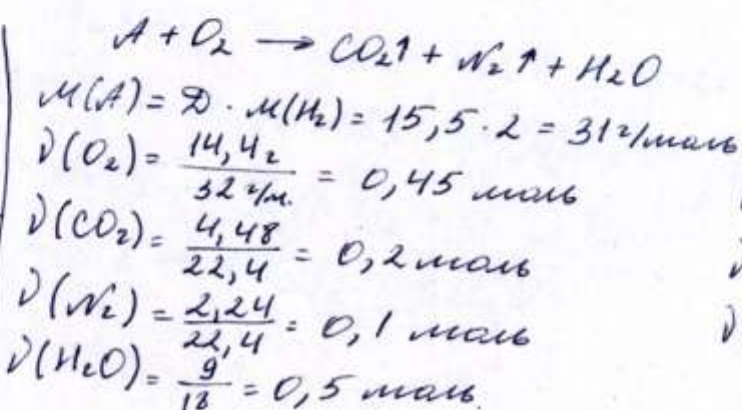 A + O₂ → CO₂↑ + N₂↑ + H₂O
M(A) = D · M(H₂) = 15,5 · 2 = 31 г/моль
ν(O₂) = 14,4 г / 32 г/м. = 0,45 моль
ν(CO₂) = 4,48 / 22,4 = 0,2 моль
ν(N₂) = 2,24 / 22,4 = 0,1 моль
ν(H₂O) = 9 / 18 = 0,5 моль.